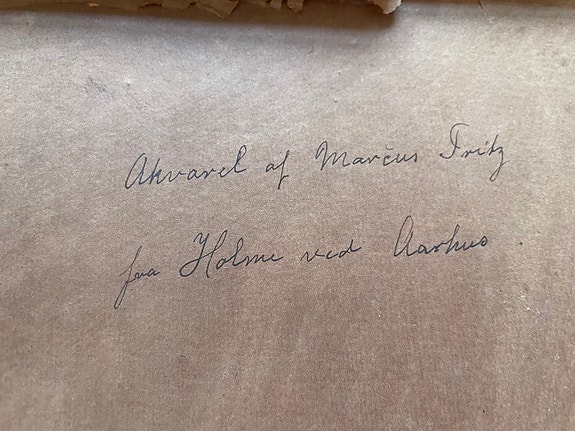 Akvarel af Marcus Fritz
fra Holme ved Aarhus